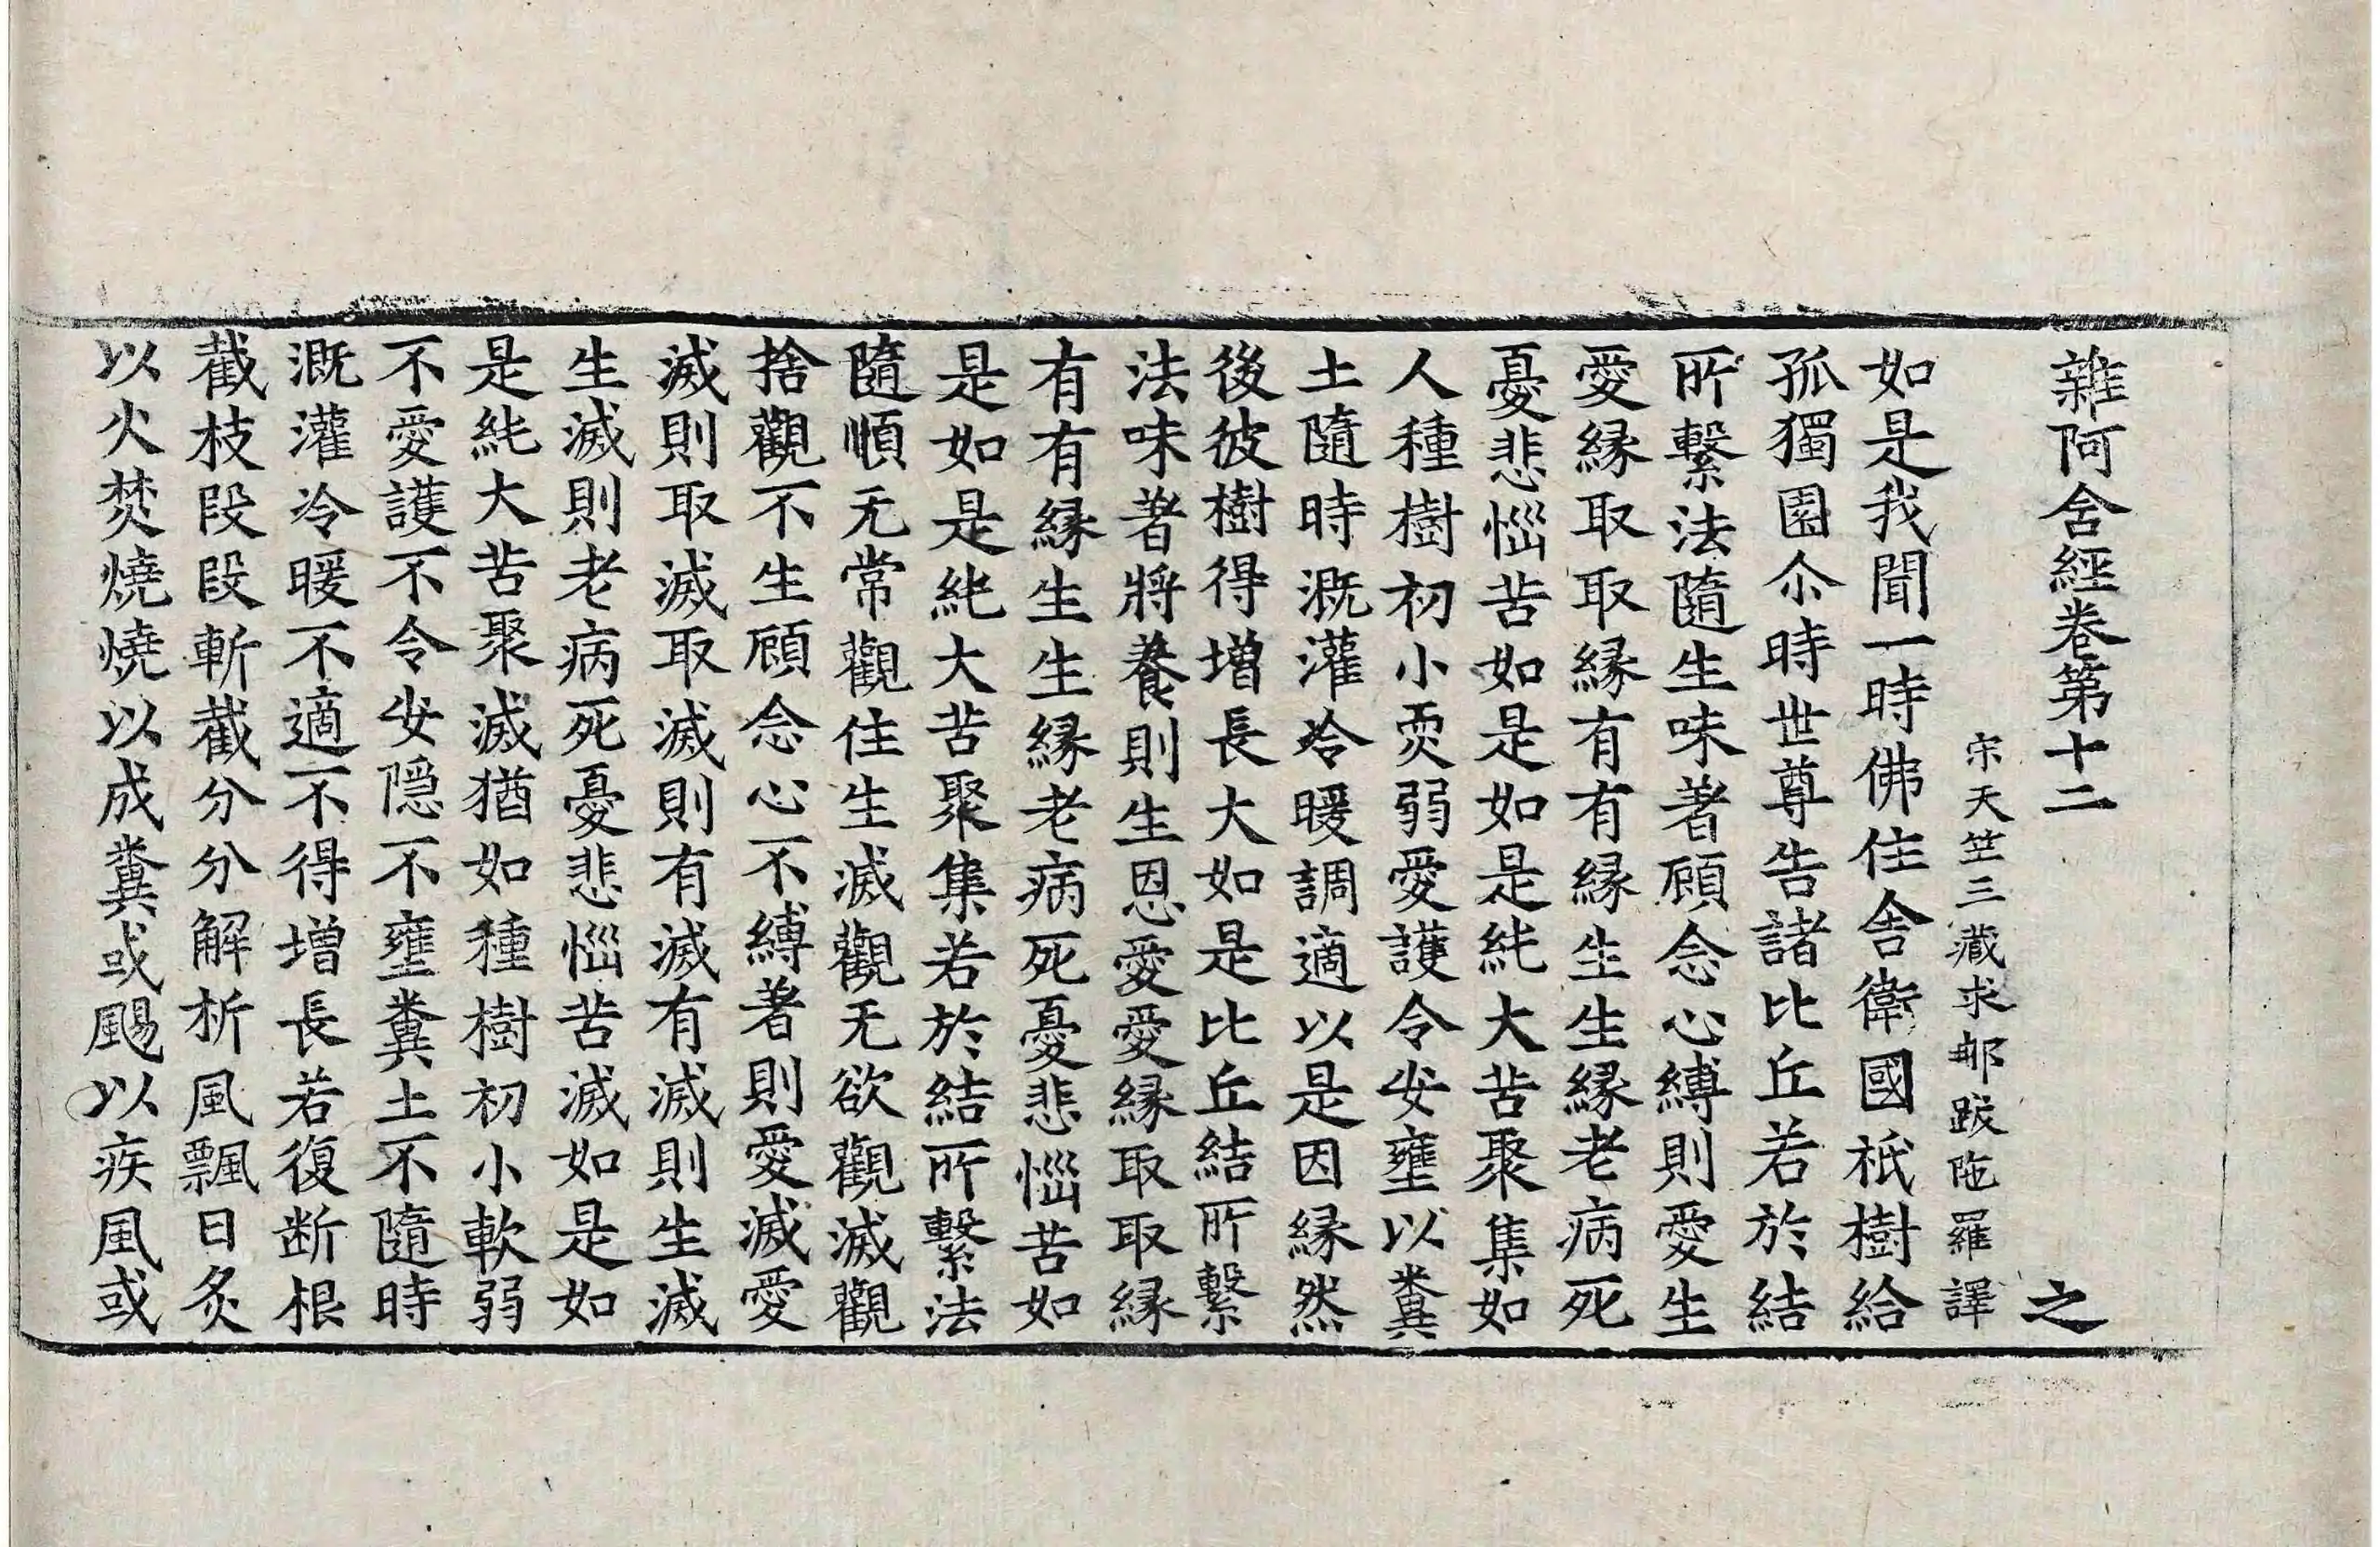 雜阿含經卷第十二　之
宋天竺三藏求那跋陁羅譯
如是我聞一時佛住舍衛國祇樹給
孤獨園尒時世尊告諸比丘若於結
所繫法隨生味著顧念心縛則愛生
愛縁取取縁有有縁生生縁老病死
憂悲惱苦如是如是純大苦聚集如
人種樹初小耎弱愛護令安壅以糞
土隨時溉灌冷暖調適以是因縁然
後彼樹得增長大如是比丘結所繫
法味著將養則生恩愛愛縁取取縁
有有縁生生縁老病死憂悲惱苦如
是如是純大苦聚集若於結所繫法
隨順无常觀住生滅觀无欲觀滅觀
捨觀不生顧念心不縛著則愛滅愛
滅則取滅取滅則有滅有滅則生滅
生滅則老病死憂悲惱苦滅如是如
是純大苦聚滅猶如種樹初小軟弱
不愛護不令安隱不壅糞土不隨時
溉灌冷暖不適不得增長若復断根
截枝段段斬截分分解析風飄日炙
以火焚燒燒以成糞或颺以疾風或